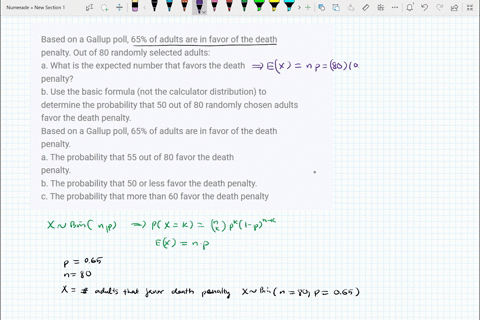 Numerade » New Section 1
Based on a Gallup poll, 65% of adults are in favor of the death
penalty. Out of 80 randomly selected adults:
a. What is the expected number that favors the death ⇒ E(X) = n p = (80)(0
penalty?
b. Use the basic formula (not the calculator distribution) to
determine the probability that 50 out of 80 randomly chosen adults
favor the death penalty.
Based on a Gallup poll, 65% of adults are in favor of the death
penalty.
a. The probability that 55 out of 80 favor the death
penalty.
b. The probability that 50 or less favor the death penalty.
c. The probability that more than 60 favor the death penalty
X ~ Bin( n,p) ⇒ P(X = k) = (n k) p^k (1-p)^n-k
E(X) = n·p
p = 0.65
n = 80
X = # adults that favor death penalty X ~ Bin ( n = 80, p = 0.65 )